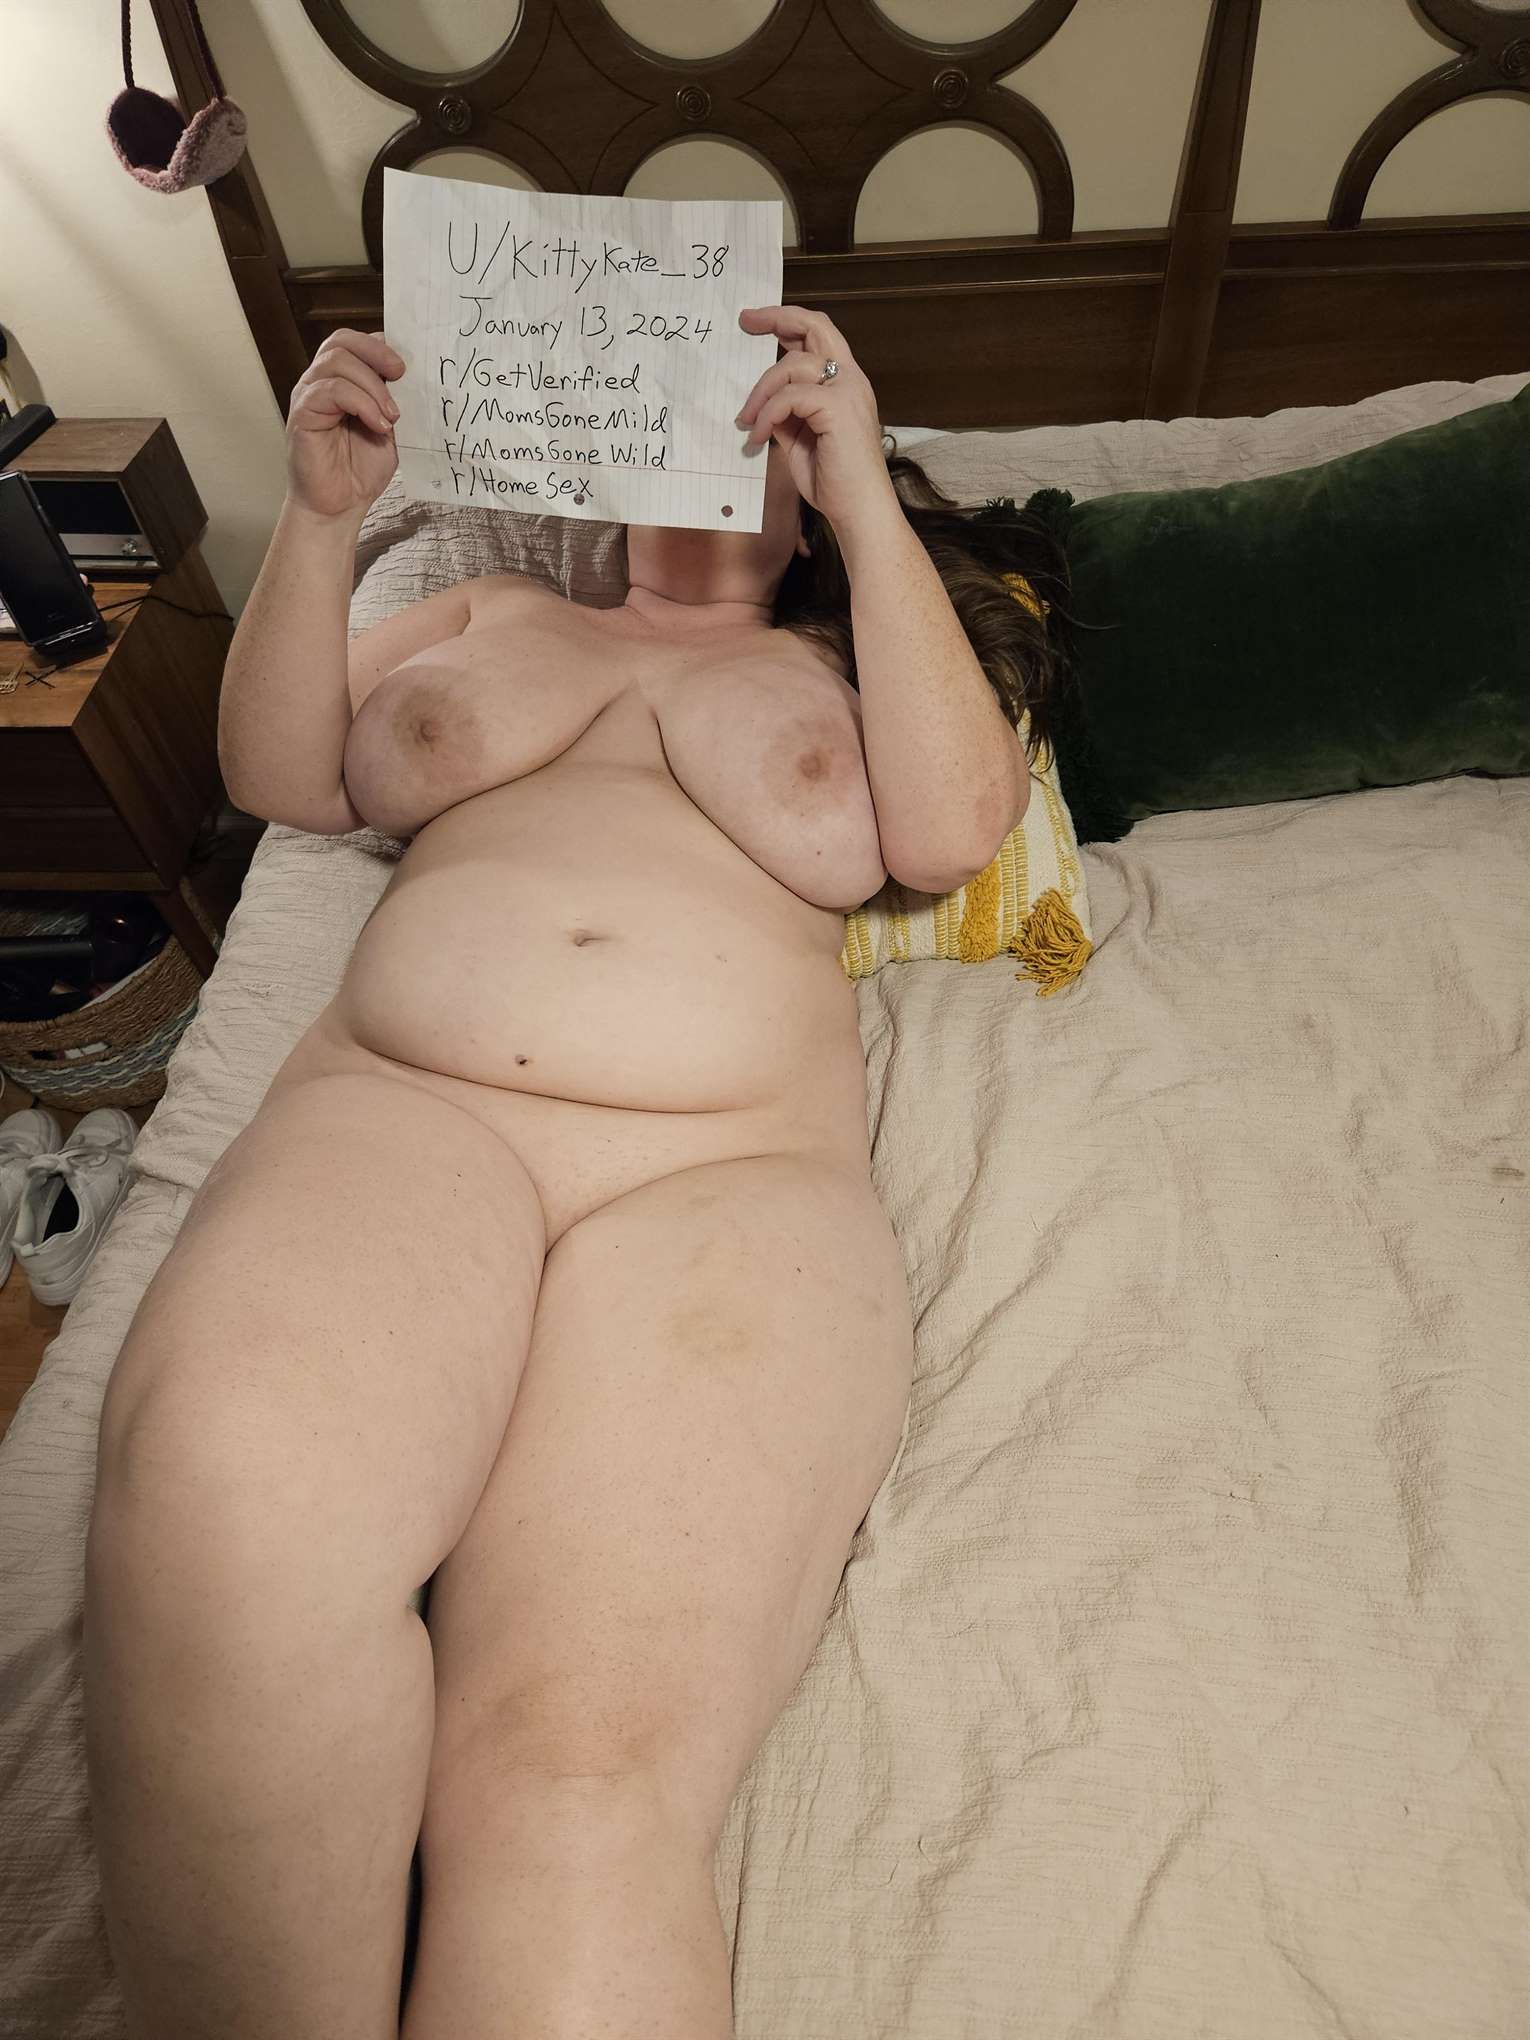 U/KittyKate_38
January 13, 2024
r/GetVerified
r/MomsGoneMild
r/MomsGoneWild
r/HomeSex